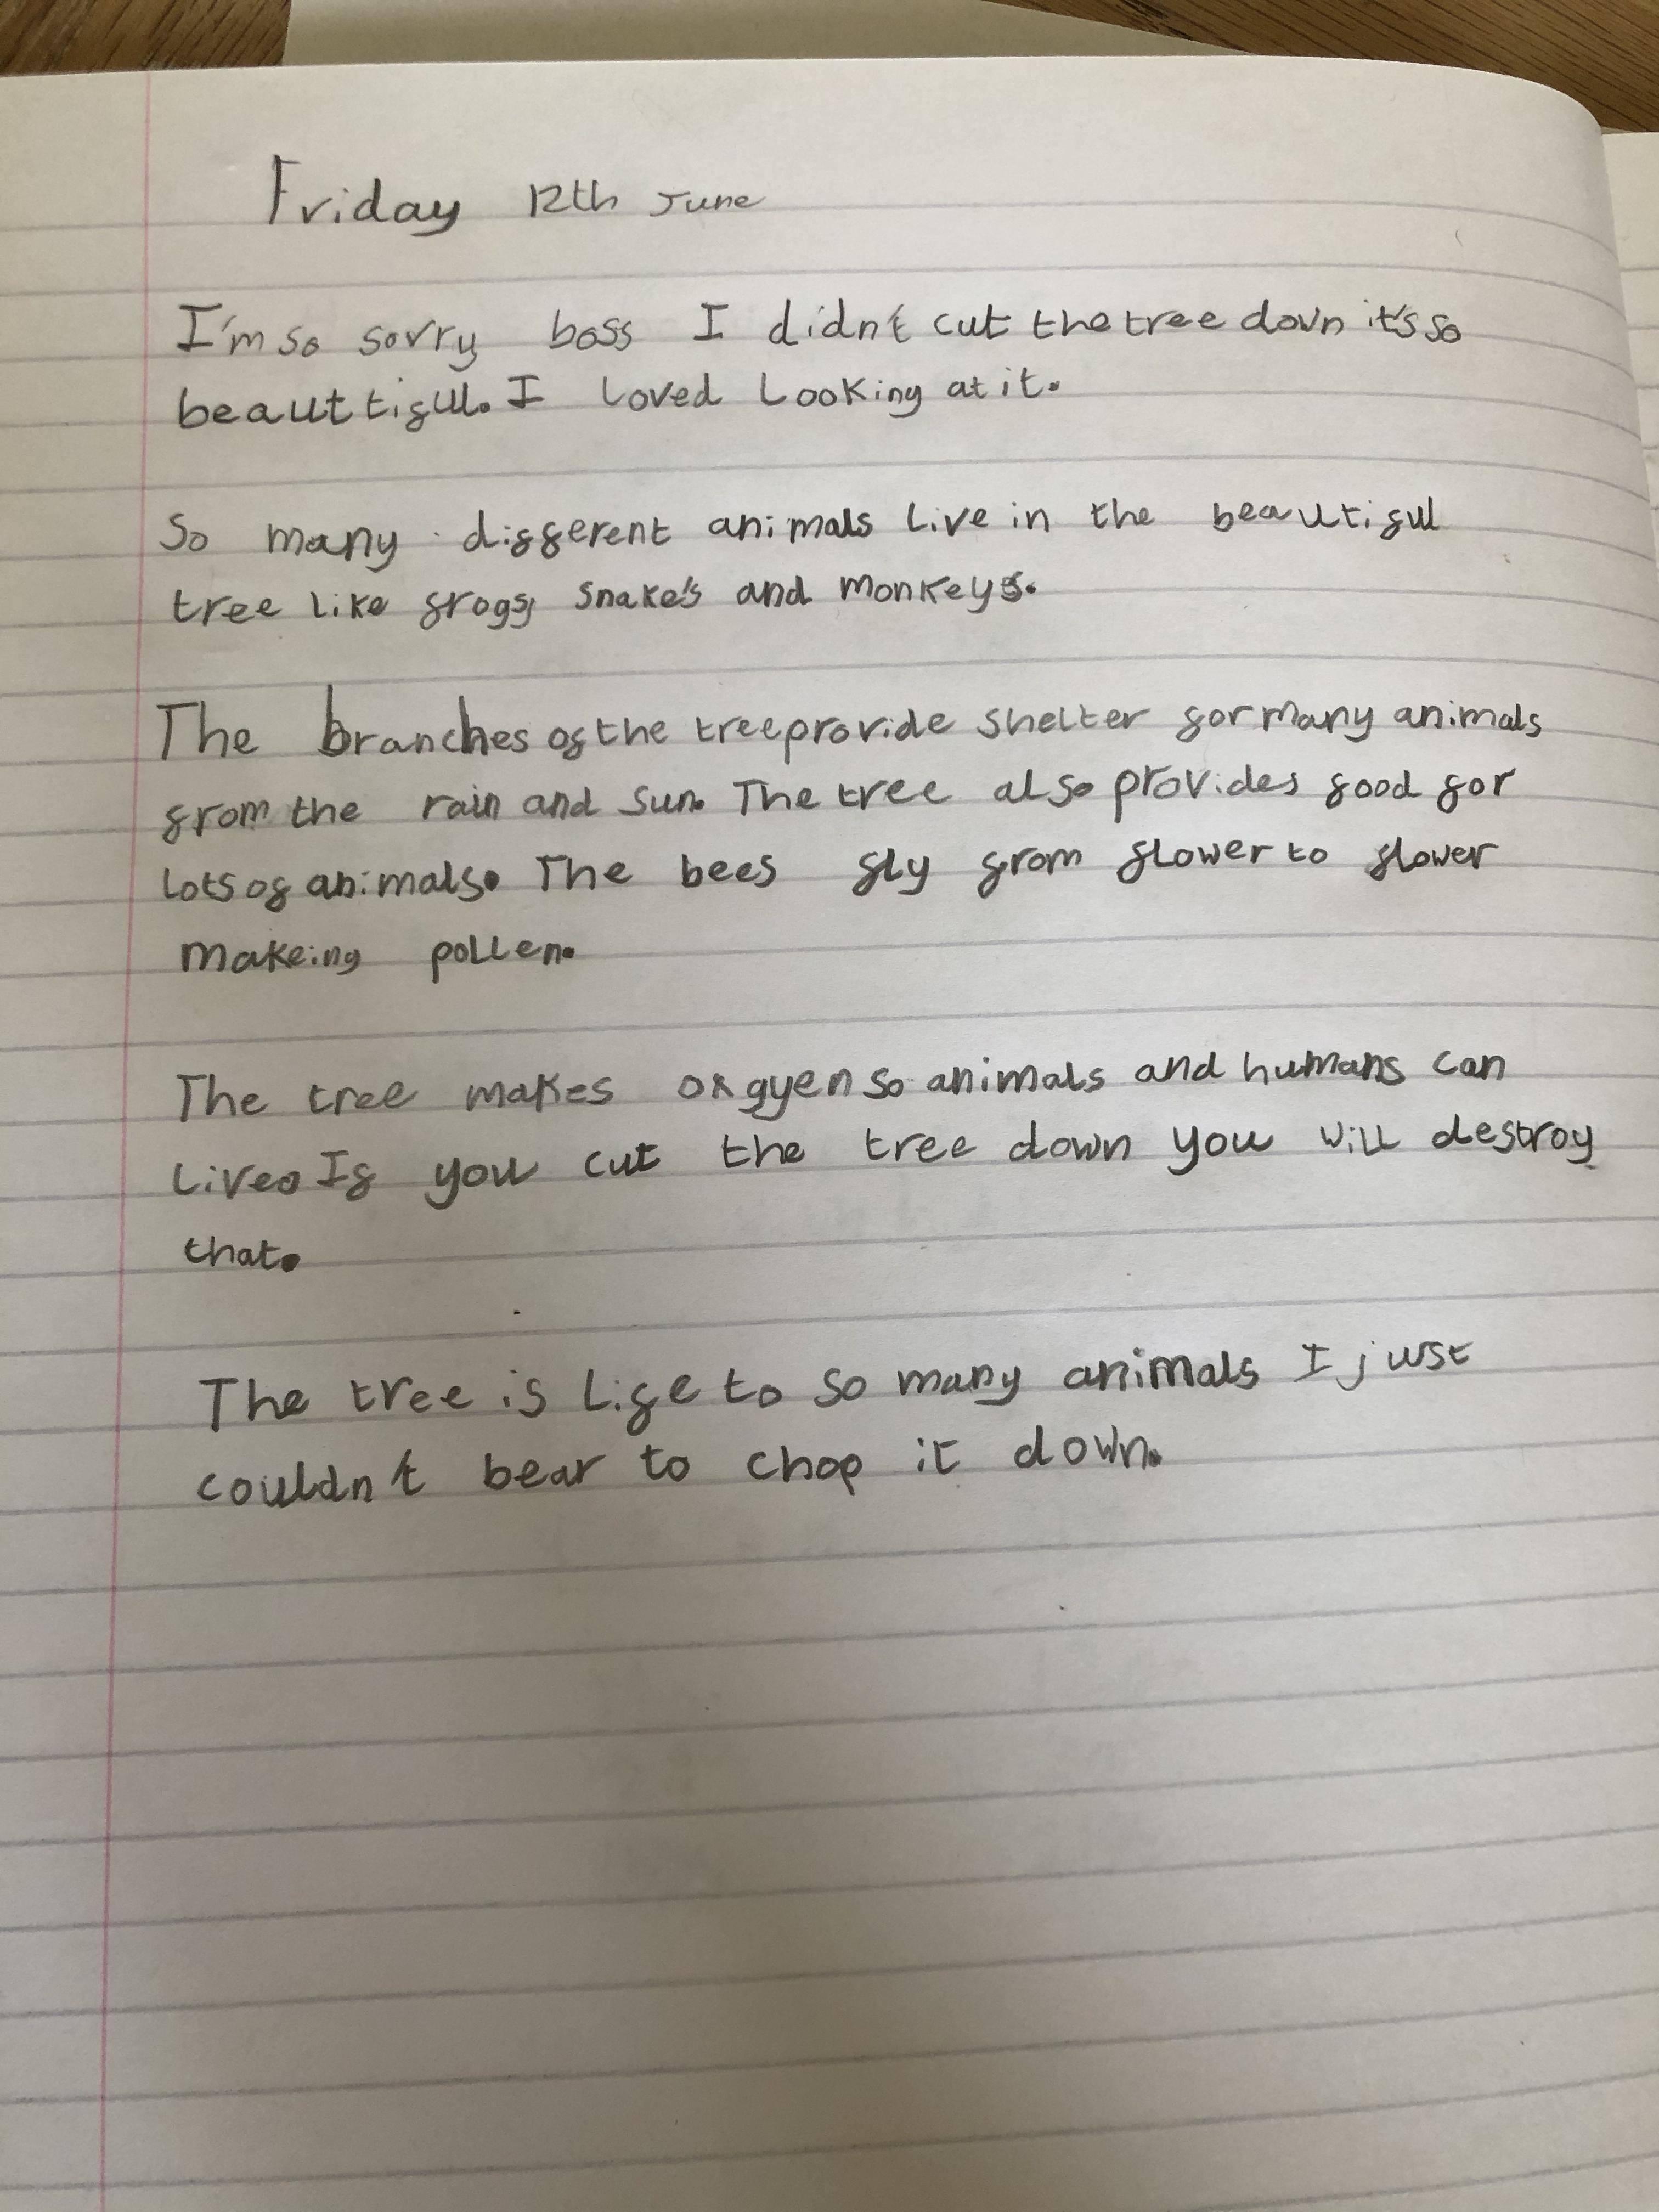 Friday 12th June
I'm so sorry boss I didn't cut the tree down it's so
beauttiful. I loved Looking at it.
So many different animals live in the beautiful
tree like frogs, snake's and monkeys.
The branches of the tree provide shelter for many animals
from the rain and sun. The tree also provides food for
lots of animals. The bees fly from flower to flower
makeing pollen.
The tree makes oxgyen so animals and humans can
live. If you cut the tree down you will destroy
that.
The tree is life to so many animals I just
couldn't bear to chop it down.